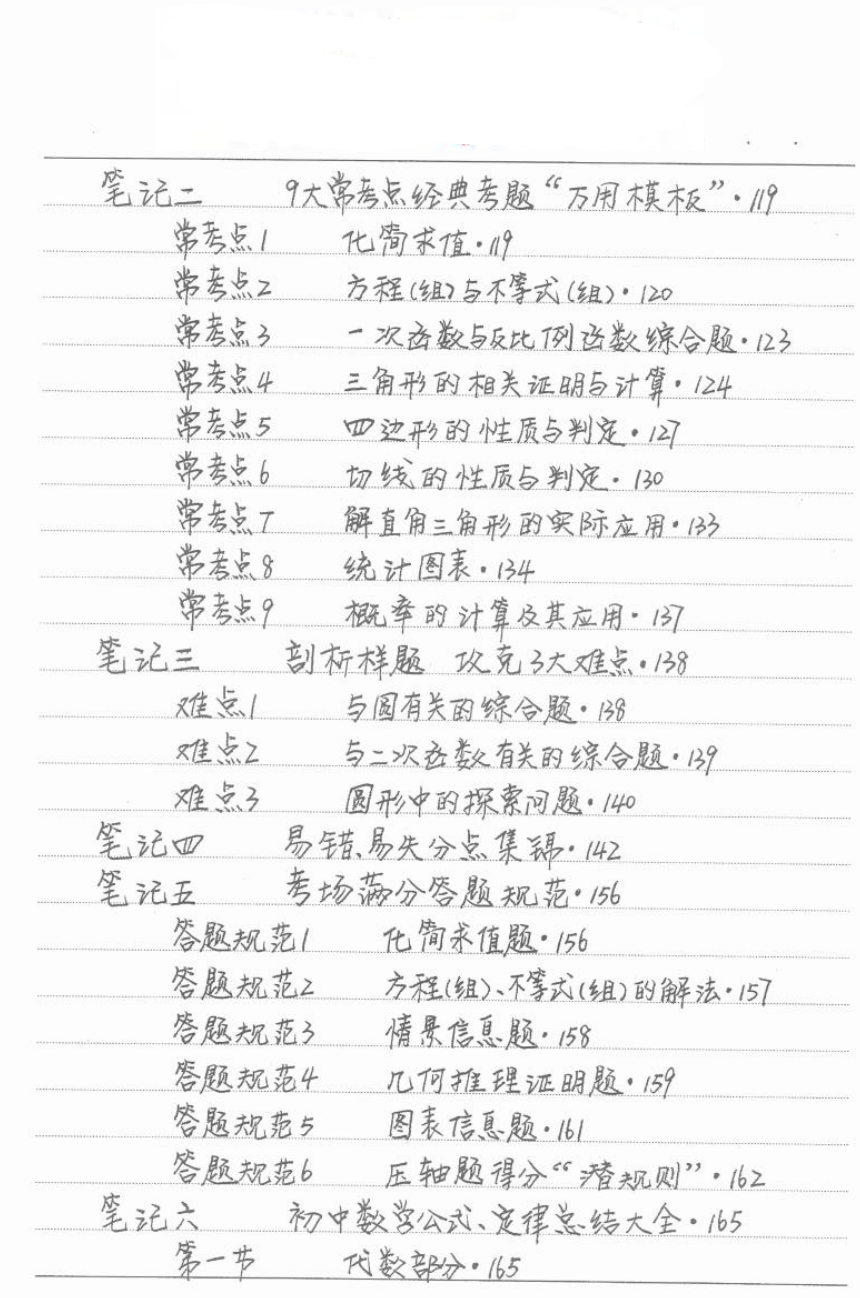 笔记二 9大常考点经典考题“万用模板”·119
常考点1 化简求值·119
常考点2 方程(组)与不等式(组)·120
常考点3 一次函数与反比例函数综合题·123
常考点4 三角形的相关证明与计算·124
常考点5 四边形的性质与判定·127
常考点6 切线的性质与判定·130
常考点7 解直角三角形的实际应用·133
常考点8 统计图表·134
常考点9 概率的计算及其应用·137
笔记三 剖析样题 攻克3大难点·138
难点1 与圆有关的综合题·138
难点2 与二次函数有关的综合题·139
难点3 图形中的探索问题·140
笔记四 易错、易失分点集锦·142
笔记五 考场满分答题规范·156
答题规范1 化简求值题·156
答题规范2 方程(组)、不等式(组)的解法·157
答题规范3 情景信息题·158
答题规范4 几何推理证明题·159
答题规范5 图表信息题·161
答题规范6 压轴题得分“潜规则”·162
笔记六 初中数学公式、定律总结大全·165
第一节 代数部分·165